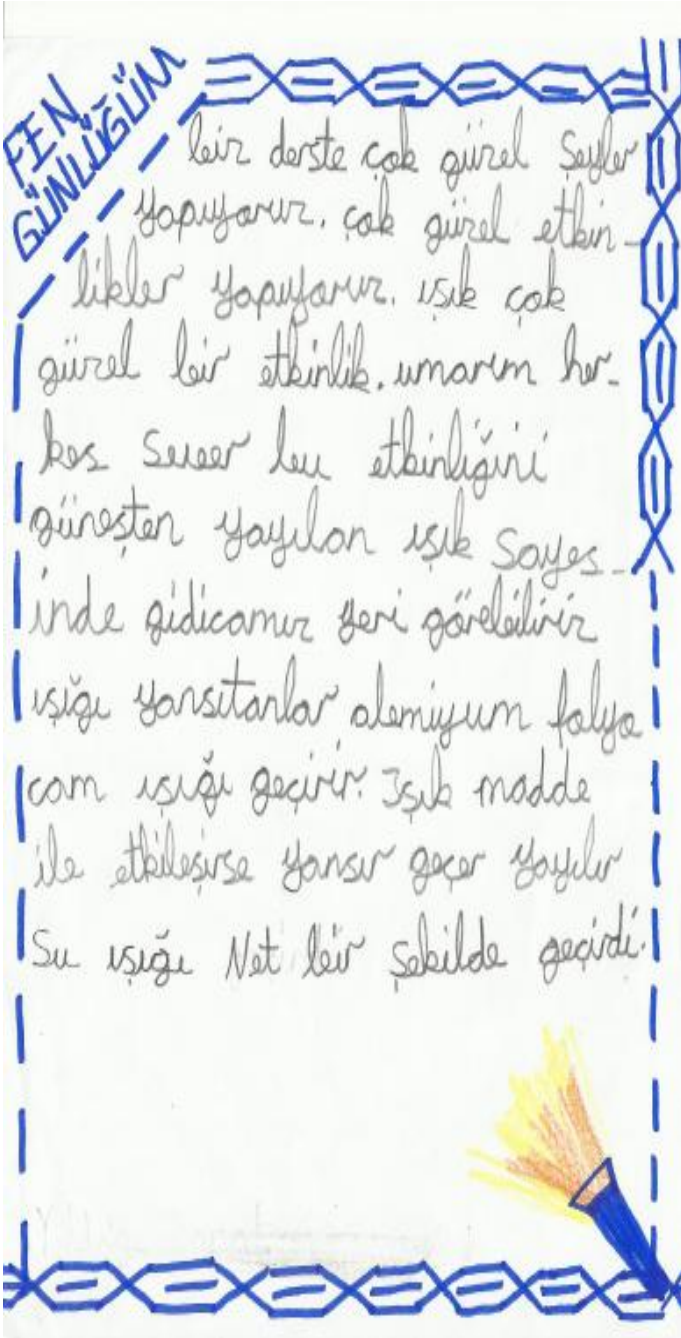 FEN
GÜNLÜĞÜM
biz derste çok güzel Şeyler
yapıyoruz. çok güzel etkin-
likler yapıyoruz. ışık çok
güzel bir etkinlik. umarım her-
kes Sever bu etkinliğini
güneşten yayılan ışık Sayes-
inde gidicamız yeri görebiliriz
ışığı yansıtanlar alemiyum folyo
cam ışığı geçirir. Işık madde
ile etkileşirse yansır geçer yayılır
Su ışığı Net bir şekilde geçirdi.